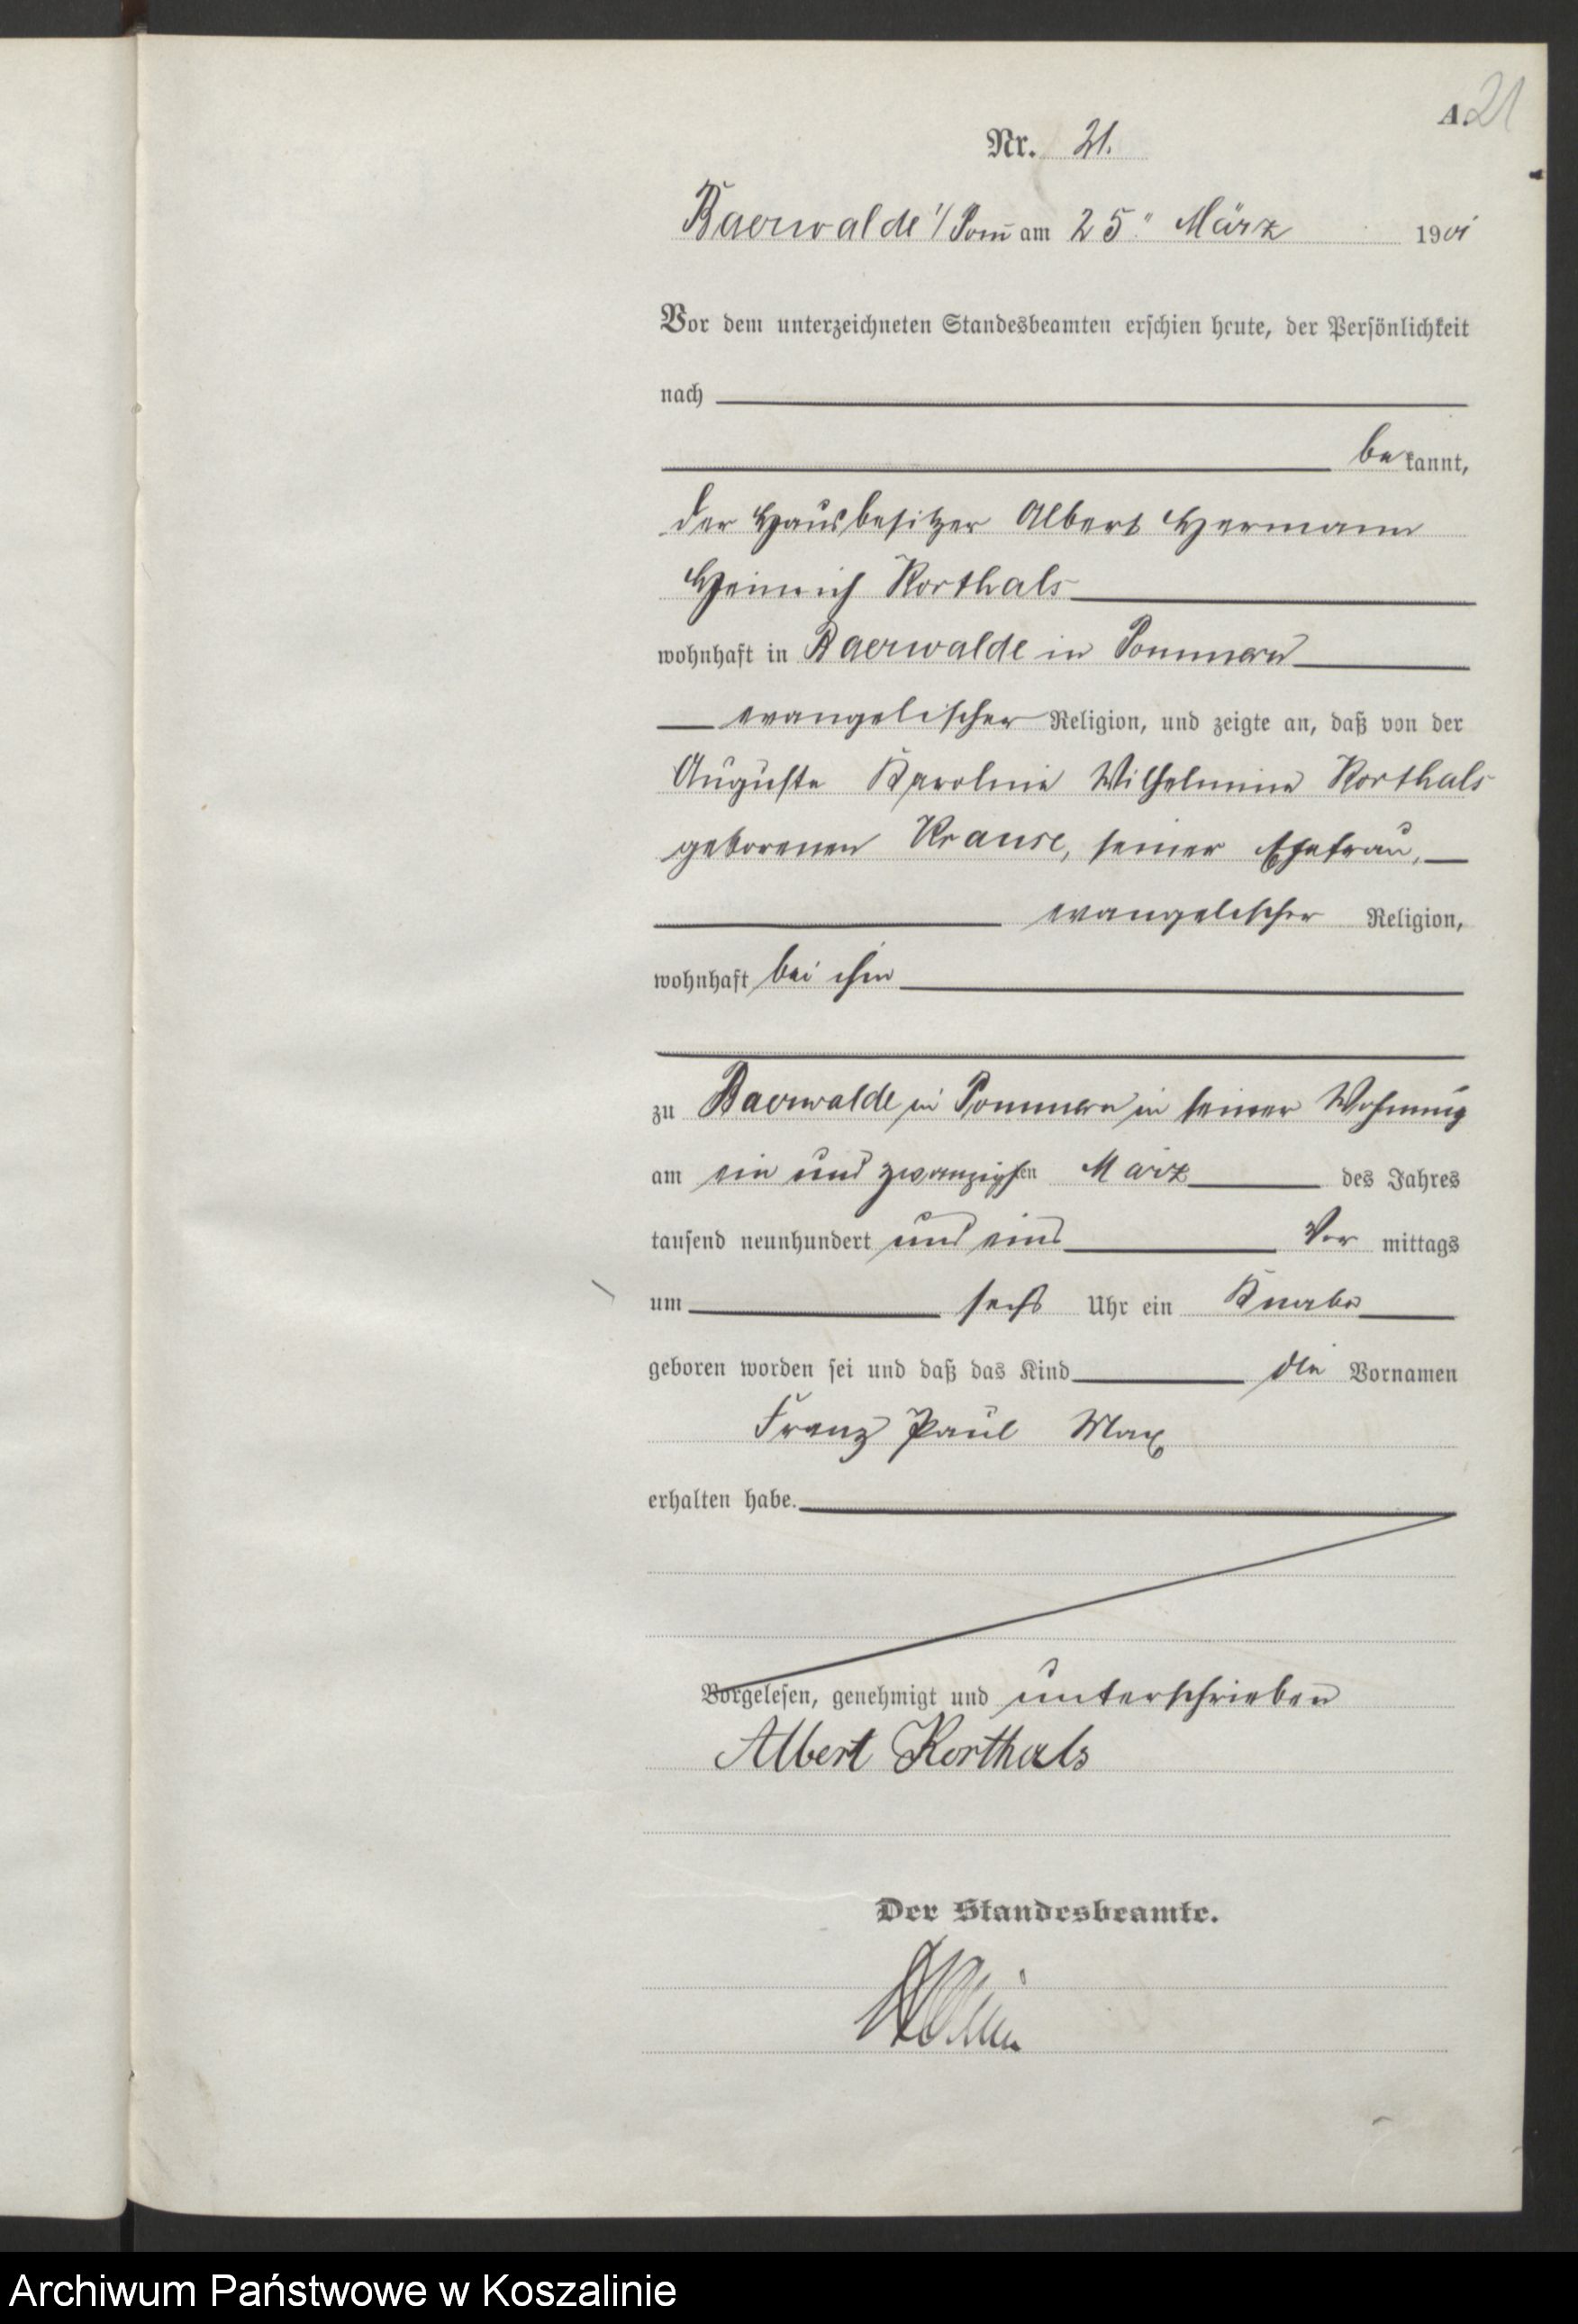 A. 21
Nr. 21.
Baerwalde i/Pom am 25ᵗᵉⁿ März 1901
Vor dem unterzeichneten Standesbeamten erschien heute, der Persönlichkeit
nach
be kannt,
der Hausbesitzer Albert Hermann
Heinrich Korthals
wohnhaft in Baerwalde in Pommern
evangelischer Religion, und zeigte an, daß von der
Auguste Karoline Wilhelmine Korthals
geborenen Krause, seiner Ehefrau,
evangelischer Religion,
wohnhaft bei ihm
zu Baerwalde in Pommern in seiner Wohnung
am ein und zwanzigsten März des Jahres
tausend neunhundert und eins Vor mittags
um sechs Uhr ein Knabe
geboren worden sei und daß das Kind die Vornamen
Franz Paul Max
erhalten habe.
Vorgelesen, genehmigt und unterschrieben
Albert Korthals
Der Standesbeamte.
Archiwum Państwowe w Koszalinie